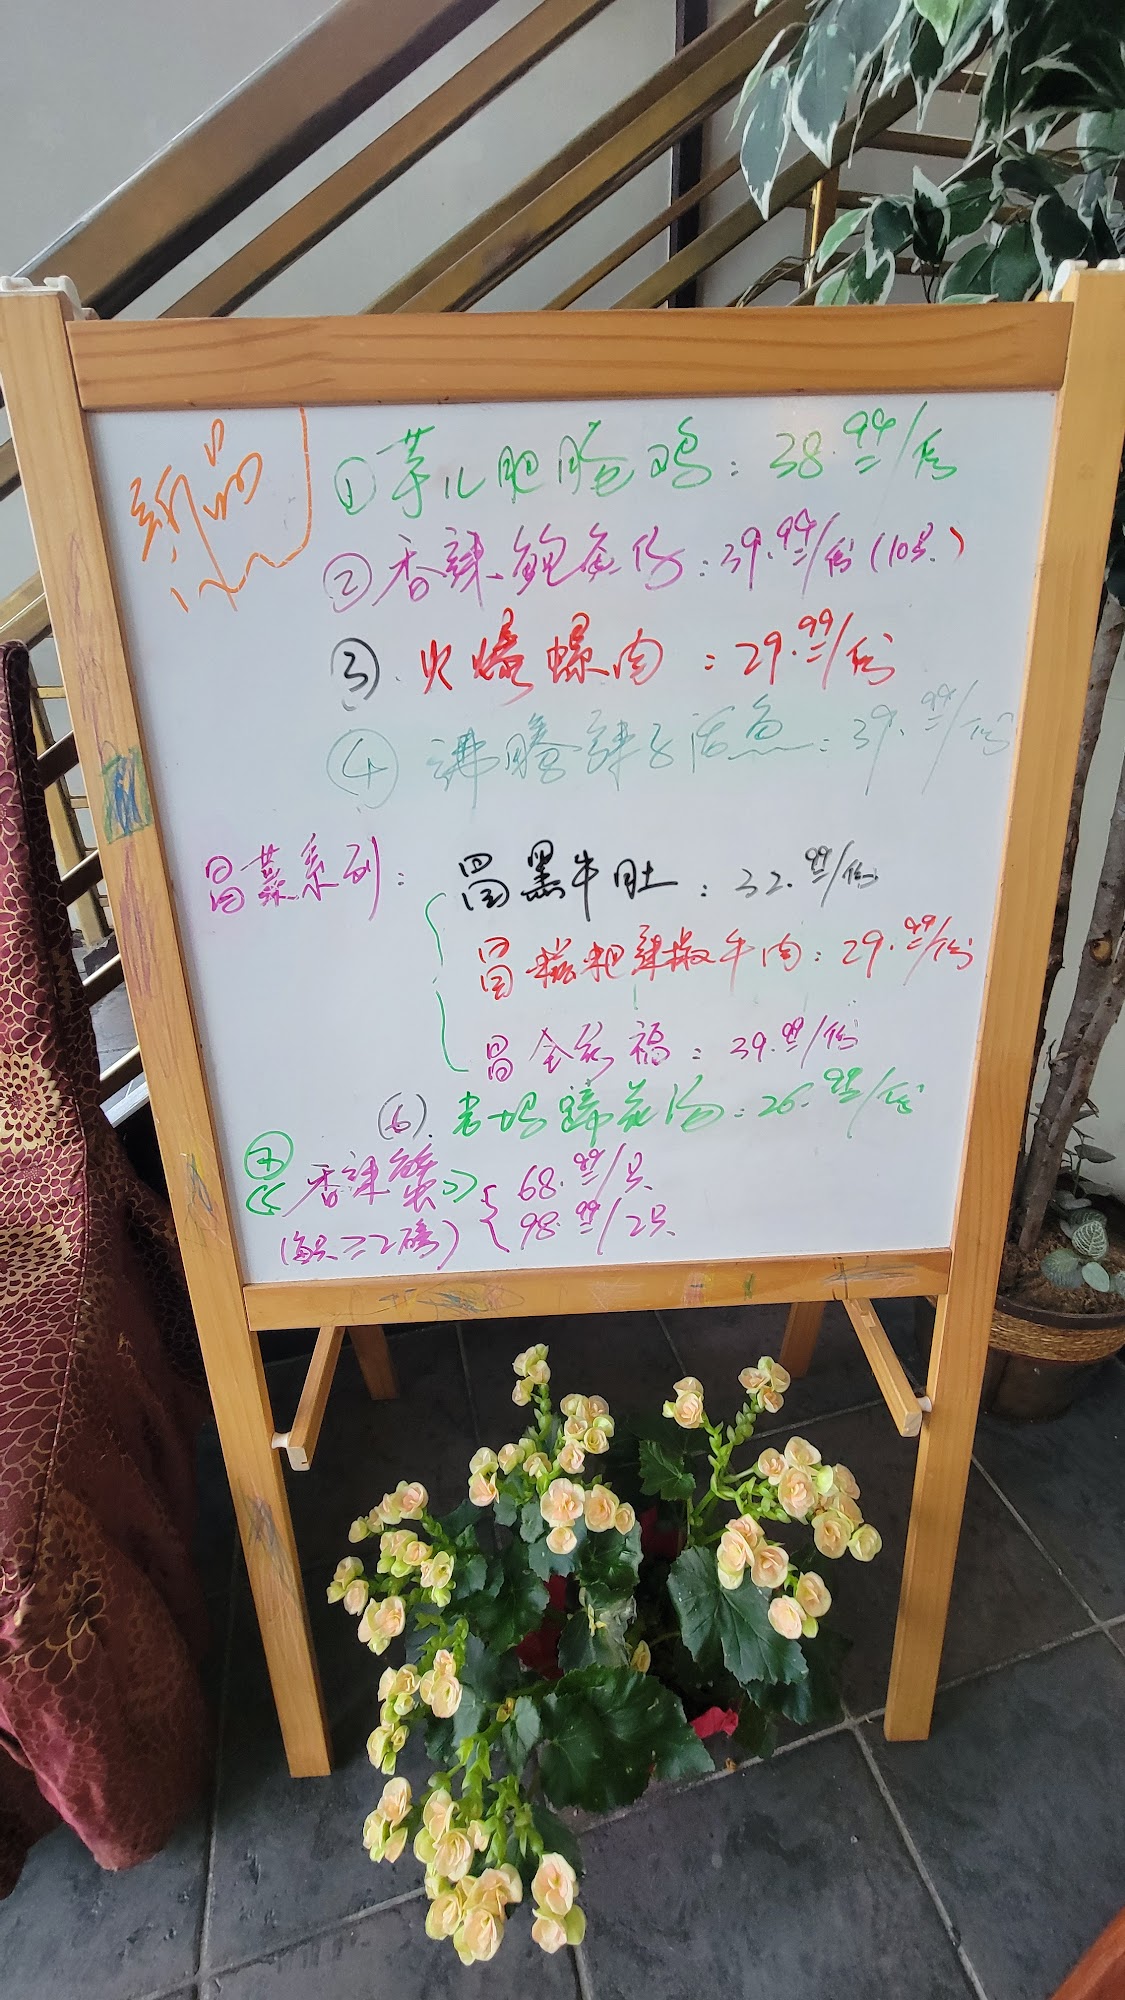 新品
① 芋儿肥肠鸡：38.99/份
② 香辣鲍鱼仔：39.99/份(10只)
③. 火爆螺肉：29.99/份
④ 沸腾辣子活鱼：39.99/份
冒菜系列： 冒黑牛肚：32.99/份
冒糍粑辣椒牛肉：29.99/份
冒全家福：39.99/份
(6). 老妈蹄花汤：26.99/份
⑦
《香辣蟹》 68.99/只
(每只≥2磅) 98.99/2只